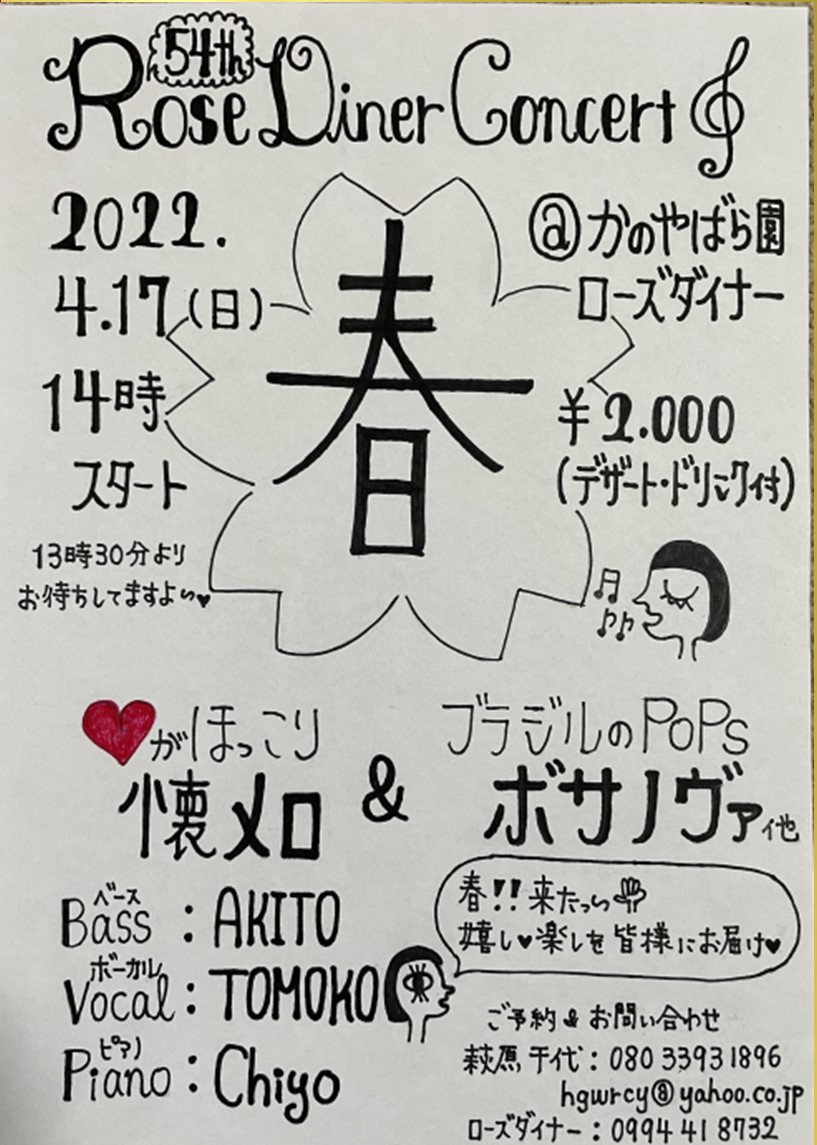 54th
Rose Diner Concert
2022.
4.17(日)
14時
スタート
13時30分より
お待ちしてますよ〜♥
春
@かのやばら園
ローズダイナー
¥2.000
(デザート・ドリンク付)
♥がほっこり
懐メロ
&
ブラジルのPOPs
ボサノヴァ 他
春!!来たっ〜
嬉し♥楽しを皆様にお届け♥
ベース
Bass : AKITO
ボーカル
Vocal : TOMOKO
ピアノ
Piano : Chiyo
ご予約&お問い合わせ
萩原 千代 : 080 3393 1896
hgwrcy@yahoo.co.jp
ローズダイナー : 0994 41 8732